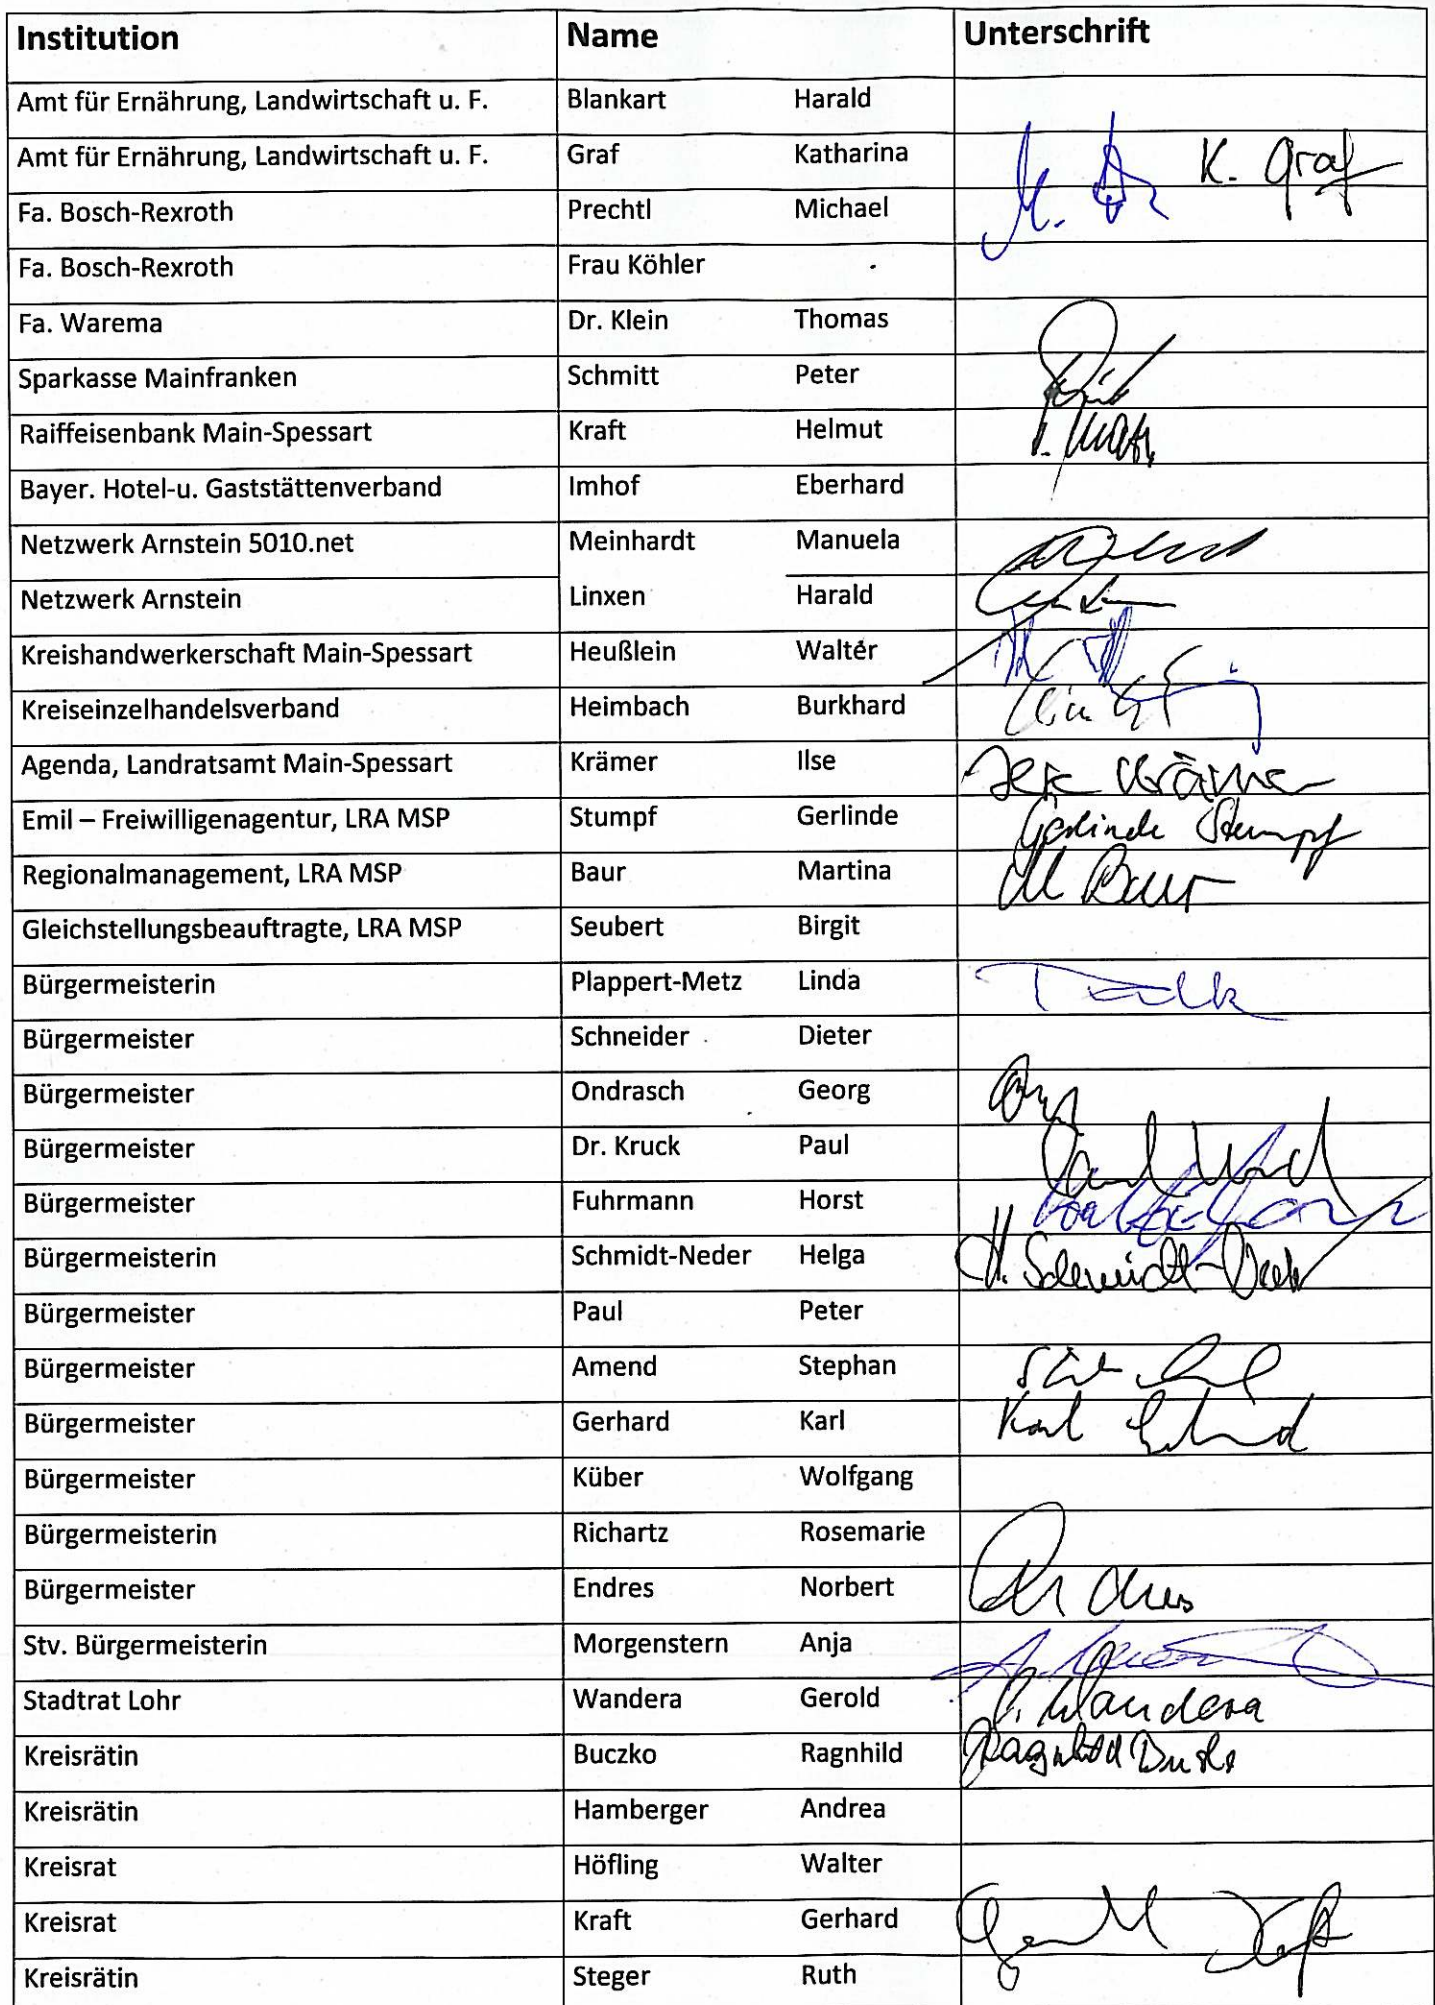 Institution Name Unterschrift
Amt für Ernährung, Landwirtschaft u. F. Blankart Harald
Amt für Ernährung, Landwirtschaft u. F. Graf Katharina K. Graf
Fa. Bosch-Rexroth Prechtl Michael
Fa. Bosch-Rexroth Frau Köhler
Fa. Warema Dr. Klein Thomas
Sparkasse Mainfranken Schmitt Peter
Raiffeisenbank Main-Spessart Kraft Helmut
Bayer. Hotel-u. Gaststättenverband Imhof Eberhard
Netzwerk Arnstein 5010.net Meinhardt Manuela
Netzwerk Arnstein Linxen Harald
Kreishandwerkerschaft Main-Spessart Heußlein Walter
Kreiseinzelhandelsverband Heimbach Burkhard
Agenda, Landratsamt Main-Spessart Krämer Ilse Ilse Krämer
Emil – Freiwilligenagentur, LRA MSP Stumpf Gerlinde Gerlinde Stumpf
Regionalmanagement, LRA MSP Baur Martina M Baur
Gleichstellungsbeauftragte, LRA MSP Seubert Birgit
Bürgermeisterin Plappert-Metz Linda
Bürgermeister Schneider Dieter
Bürgermeister Ondrasch Georg
Bürgermeister Dr. Kruck Paul Paul Kruck
Bürgermeister Fuhrmann Horst
Bürgermeisterin Schmidt-Neder Helga H. Schmidt-Neder
Bürgermeister Paul Peter
Bürgermeister Amend Stephan
Bürgermeister Gerhard Karl Karl Gerhard
Bürgermeister Küber Wolfgang
Bürgermeisterin Richartz Rosemarie
Bürgermeister Endres Norbert
Stv. Bürgermeisterin Morgenstern Anja
Stadtrat Lohr Wandera Gerold G. Wandera
Kreisrätin Buczko Ragnhild Ragnhild Buczko
Kreisrätin Hamberger Andrea
Kreisrat Höfling Walter
Kreisrat Kraft Gerhard
Kreisrätin Steger Ruth